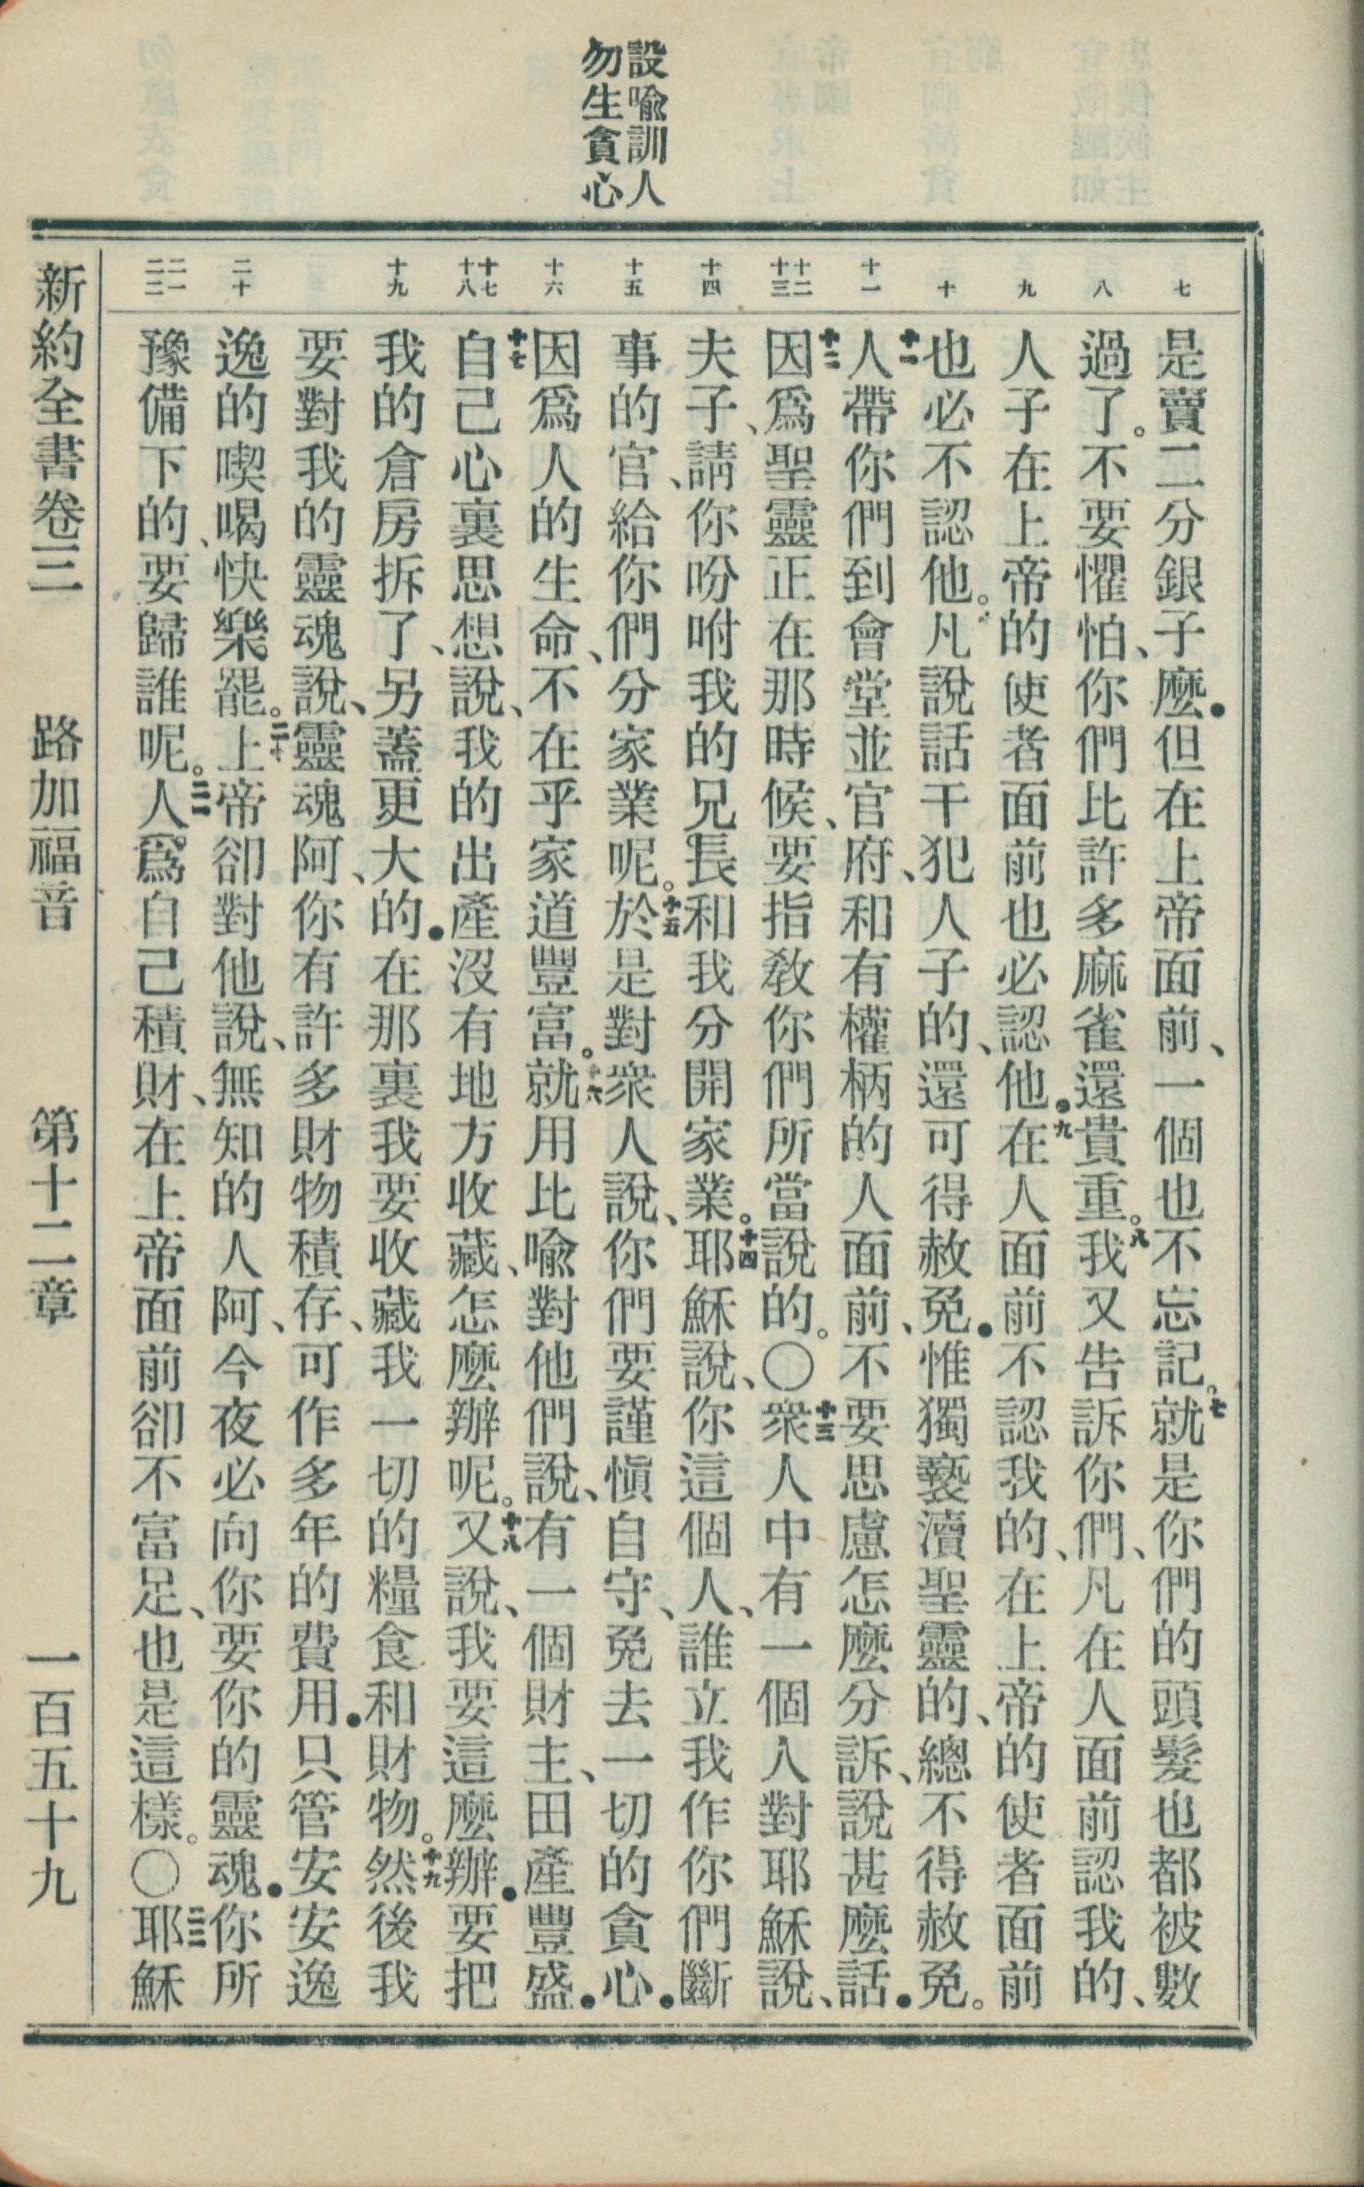 設喩訓人
勿生貪心
七
八
九
十
十一
十二
十三
十四
十五
十六
十七
十八
十九
二十
二一
二二
是賣二分銀子麼．但在上帝面前、一個也不忘記。七就是你們的頭髮也都被數
過了。不要懼怕、你們比許多麻雀還貴重。八我又告訴你們、凡在人面前認我的、
人子在上帝的使者面前也必認他．九在人面前不認我的、在上帝的使者面前
也必不認他。凡說話干犯人子的、還可得赦免．惟獨褻瀆聖靈的、總不得赦免。
十一人帶你們到會堂並官府、和有權柄的人面前、不要思慮怎麼分訴、說甚麼話．
十二因爲聖靈正在那時候、要指敎你們所當說的。〇十三衆人中有一個人對耶穌說、
夫子、請你吩咐我的兄長和我分開家業。十四耶穌說、你這個人、誰立我作你們斷
事的官、給你們分家業呢。十五於是對衆人說、你們要謹愼自守、免去一切的貪心．
因爲人的生命、不在乎家道豐富。十六就用比喩對他們說、有一個財主、田產豐盛．
十七自己心裏思想說、我的出產沒有地方收藏、怎麼辦呢。十八又說、我要這麼辦．要把
我的倉房拆了、另蓋更大的．在那裏我要收藏我一切的糧食和財物。十九然後我
要對我的靈魂說、靈魂阿、你有許多財物積存、可作多年的費用．只管安安逸
逸的喫喝快樂罷。二十上帝卻對他說、無知的人阿、今夜必向你要你的靈魂．你所
豫備下的、要歸誰呢。二一人爲自己積財、在上帝面前卻不富足、也是這樣。〇二二耶穌
新約全書卷三　路加福音　第十二章　一百五十九